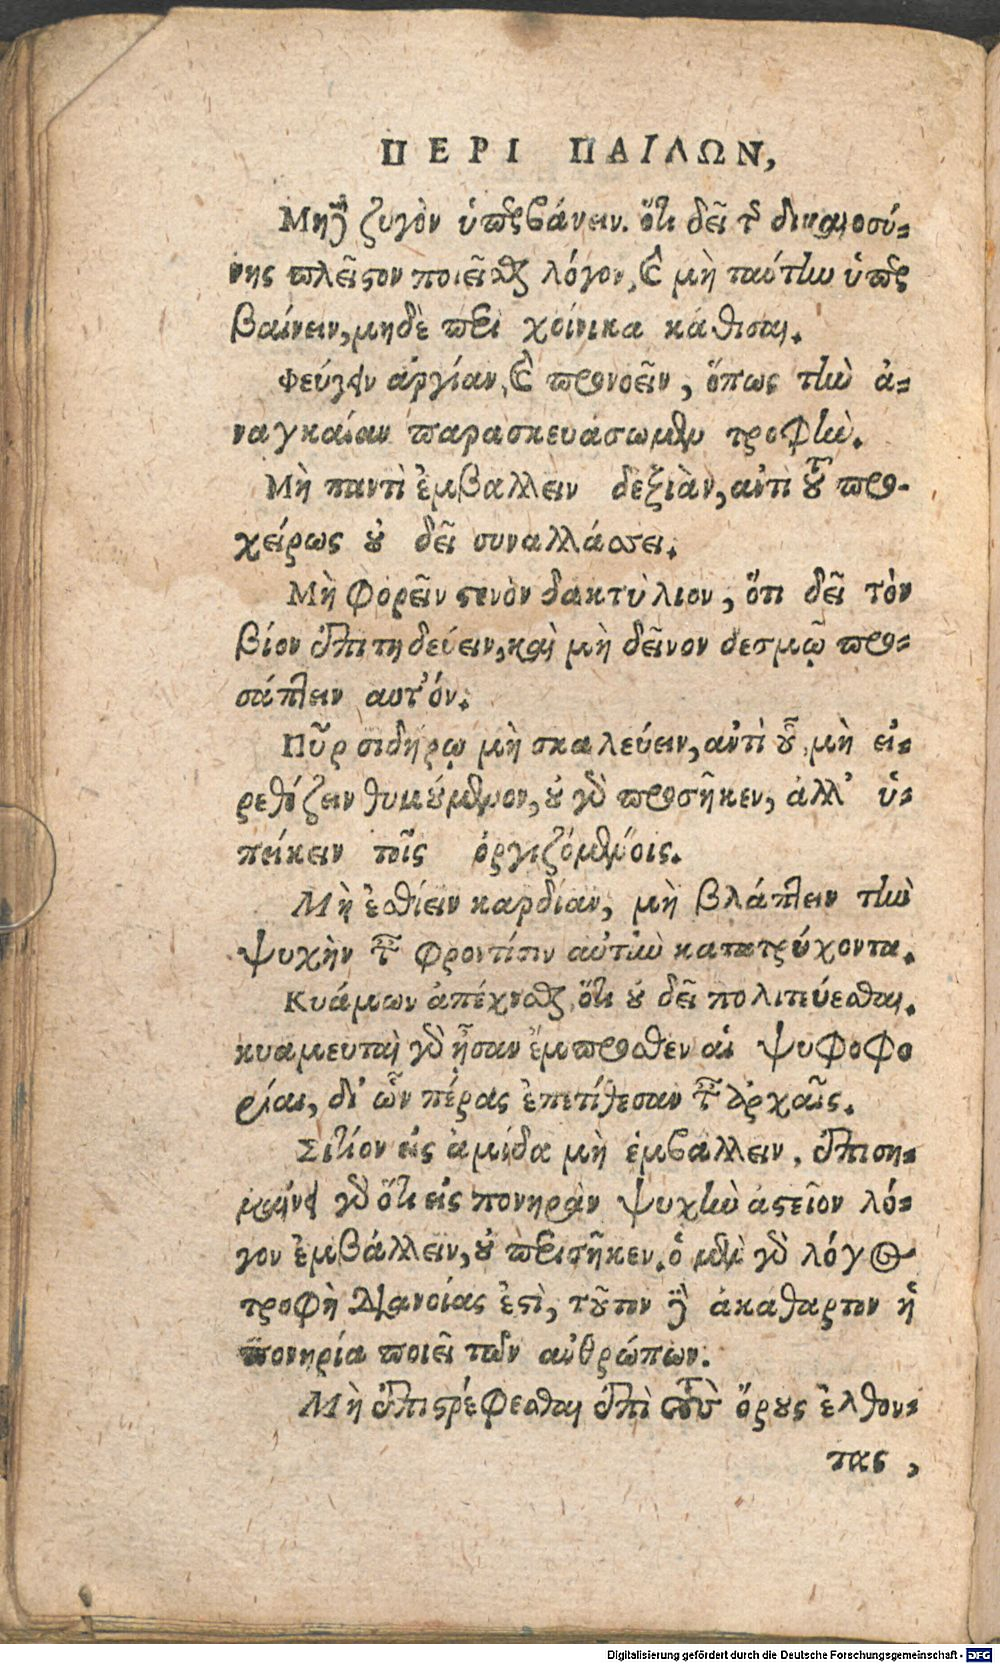 ΠΕΡΙ ΠΑΙΔΩΝ,
Μηδὲ ζυγὸν ὑπερβάνειν. ὅτι δεῖ τῆς δικαιοσύ-
νης πλεῖστον ποιεῖσθαι λόγον, καὶ μὴ ταύτην ὑπερ
βαίνειν, μηδὲ ἐπὶ χοίνικα κάθισαι.
Φεύγειν ἀργίαν, καὶ προνοεῖν, ὅπως τὴν ἀ-
ναγκαίαν παρασκευάσωμεν τροφὴν.
Μὴ παντὶ ἐμβάλλειν δεξιὰν, ἀντὶ τοῦ προ-
χείρως οὐ δεῖ συναλλάσσει.
Μὴ φορεῖν στενὸν δακτύλιον, ὅτι δεῖ τὸν
βίον ἐπιτηδεύειν, καὶ μὴ δεῖνον δεσμῷ προ-
σάπτειν αυτ’όν.
Πῦρ σιδήρῳ μὴ σκαλεύειν, ἀντὶ τοῦ, μὴ εἰ-
ρεθίζειν θυμούμενον, οὐ γὰρ προσῆκεν, ἀλλ’ ὑ-
πείκειν τοῖς ὀργιζόμενοις.
Μὴ ἐσθίειν καρδίαν, μὴ βλάπτειν τὴν
ψυχὴν ταῖς φροντίσιν αὐτὴν κατατρύχοντα.
Κυάμων ἀπέχεσθαι, ὅτι οὐ δεῖ πολιτεύεσθαι.
κυαμευταὶ γὰρ ἦσαν ἔμπροσθεν αἱ ψυφοφο
ρίαι, δι’ ὧν πέρας ἐπετίθεσαν ταῖς ἀρχαῖς.
Σιτίον εἰς ἀμίδα μὴ ἐμβάλλειν. ἐπιση-
μαίνει γὰρ ὅτι εἰς πονηρὰν ψυχὴν ἀστεῖον λό-
γον ἐμβάλλειν, οὐ προσῆκεν. ὁ μὲν γὰρ λόγος
τροφὴ διανοίας ἐστὶ, τοῦτον δὲ ἀκάθαρτον ἡ
πονηρία ποιεῖ τῶν ἀνθρώπων.
Μὴ ἐπιστρέφεσθαι ἐπὶ τοὺς ὅρους ἐλθον-
τας,
Digitalisierung gefördert durch die Deutsche Forschungsgemeinschaft - DFG